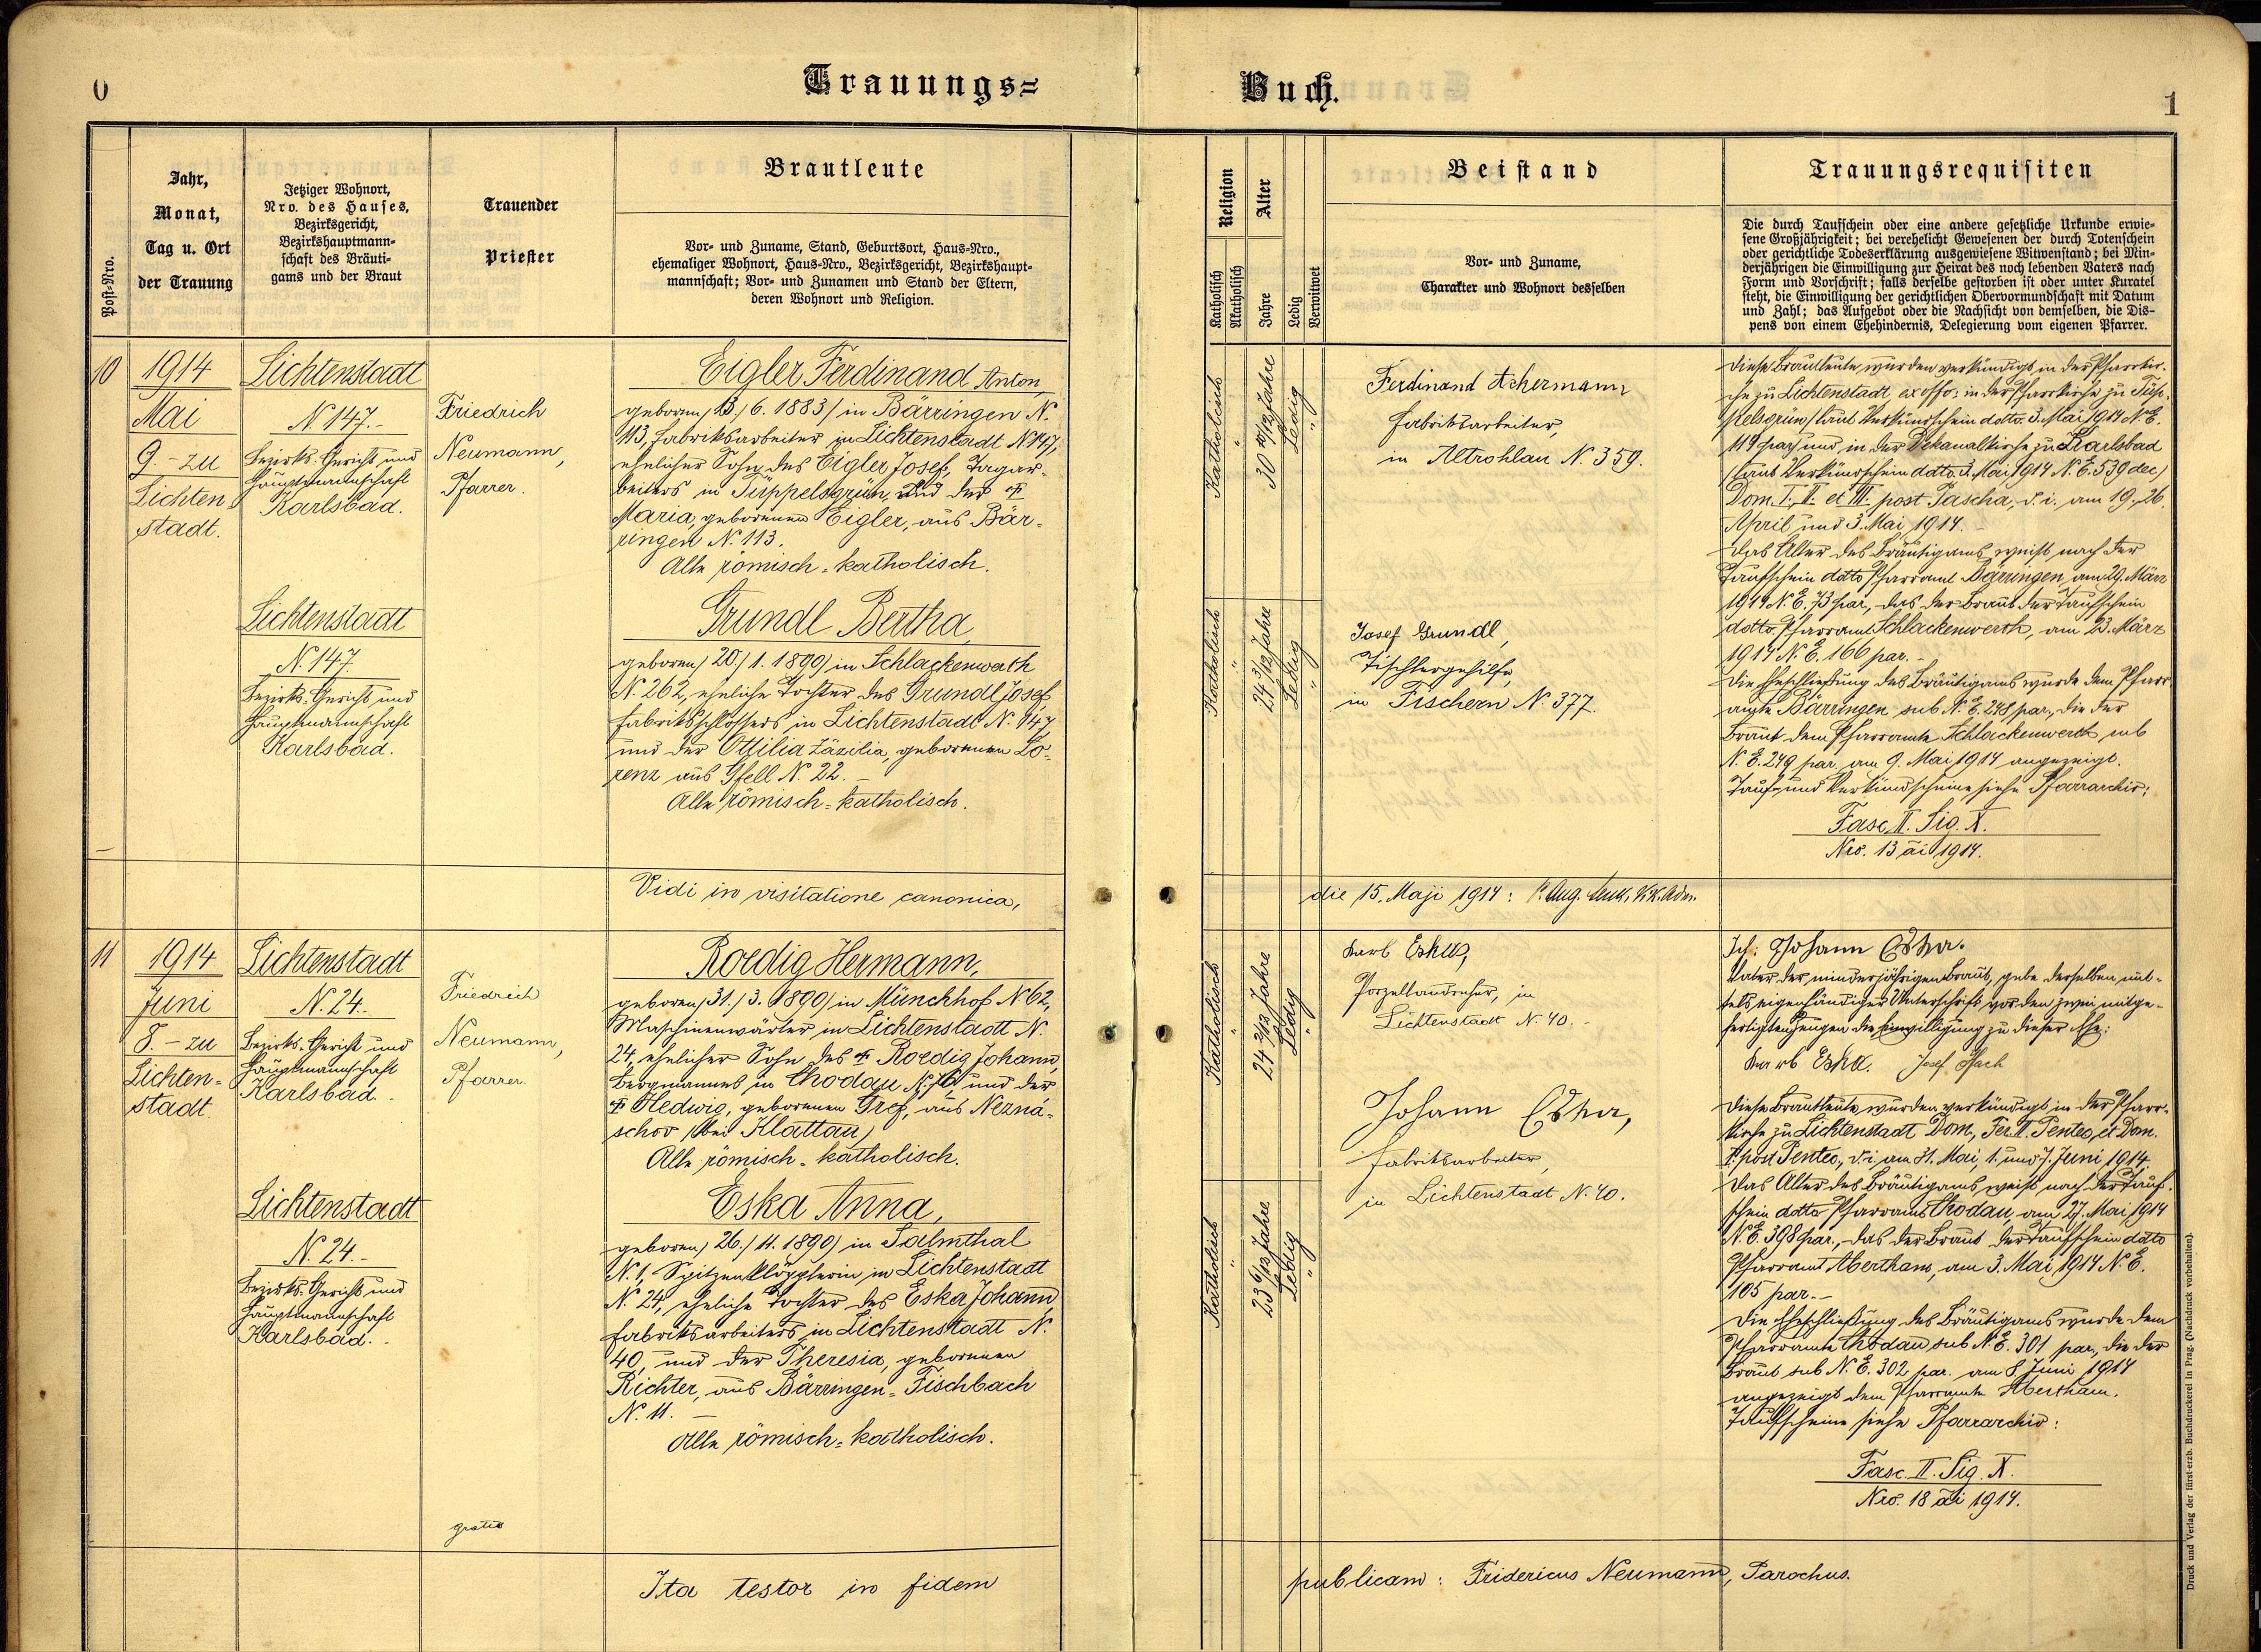 0
Trauungs=
Buch.
1
Post-Nro.
Jahr,
Monat,
Tag u. Ort
der Trauung
Jetziger Wohnort,
Nro. des Hauses,
Bezirksgericht,
Bezirkshauptmann-
schaft des Bräuti-
gams und der Braut
Trauender
Priester
Brautleute
Vor- und Zuname, Stand, Geburtsort, Haus-Nro.,
ehemaliger Wohnort, Haus-Nro., Bezirksgericht, Bezirkshaupt-
mannschaft; Vor- und Zunamen und Stand der Eltern,
deren Wohnort und Religion.
Religion
Katholisch
Akatholisch
Alter
Jahre
Ledig
Verwitwet
Beistand
Vor- und Zuname,
Charakter und Wohnort desselben
Trauungsrequisiten
Die durch Taufschein oder eine andere gesetzliche Urkunde erwie-
sene Großjährigkeit; bei verehelicht Gewesenen der durch Totenschein
oder gerichtliche Todeserklärung ausgewiesene Witwenstand; bei Min-
derjährigen die Einwilligung zur Heirat des noch lebenden Vaters nach
Form und Vorschrift; falls derselbe gestorben ist oder unter Kuratel
steht, die Einwilligung der gerichtlichen Obervormundschaft mit Datum
und Zahl; das Aufgebot oder die Nachsicht von demselben, die Dis-
pens von einem Ehehindernis, Delegierung vom eigenen Pfarrer.
10
1914
Mai
9. - zu
Lichten
stadt.
Lichtenstadt
N. 147.-
Bezirks-Gericht und
Hauptmannschaft
Karlsbad.
Friedrich
Neumann,
Pfarrer.
Eigler Ferdinand Anton,
geboren /13./6. 1883/ in Bärringen N.
113, Fabriksarbeiter in Lichtenstadt N 147,
ehelicher Sohn des Eigler Josef, Tagar-
beiters in Tüppelsgrün, und der †
Maria, geborenen Eigler, aus Bär-
ringen N. 113.
Alle römisch-katholisch.
Katholisch
"
30 10/12 Jahre
Ledig
"
Ferdinand Achermann
Fabriksarbeiter,
in Altrohlau N. 359.
Lichtenstadt
N. 147.
Bezirks-Gericht und
Hauptmannschaft
Karlsbad.
Grundl Bertha,
geboren / 20./1. 1890/ in Schlackenwerth
N. 262, eheliche Tochter des Grundl Josef,
Fabriksschlossers in Lichtenstadt N. 147
und der Ottilia Zäzilia, geborenen Lo-
renz aus Gfell N. 22. -
Alle römisch-katholisch.
Katholisch
"
24 3/12 Jahre
Ledig
"
Josef Grundl,
Tischlergehilfe,
in Fischern N. 377.
Diese Brautleute wurden verkündigt in der Pfarrkir-
che zu Lichtenstadt ex offo; in der Pfarrkirche zu Tüp-
pelsgrün /laut Verkündschein ddto. 3. Mai 1914 N. E.
114 par/ und in der Dekanalkirche zu Karlsbad
/laut Verkündschein ddto. 3. Mai 1914 N. E. 539 dec/
Dom. I., II. et III. post Pascha, d. i. am 19., 26.
April und 3. Mai 1914. -
Das Alter des Bräutigams weist nach der
Taufschein ddto Pfarramt Bärringen, am 29. März
1914 N. E. 73 par, das der Braut der Taufschein
ddto. Pfarramt Schlackenwerth, am 23. März
1914 N. E. 166 par. -
Die Eheschließung des Bräutigams wurde dem Pfarr-
amte Bärringen sub N. E. 248 par., die der
Braut dem Pfarramte Schlackenwerth sub
N. E. 249 par. am 9. Mai 1914 angezeigt.
Tauf- und Verkündscheine siehe Pfarrarchiv:
Fasc. II. Sig. X.
Nro. 13 ai 1914.
Vidi in visitatione canonica,
die 15. Maji 1914: P. Aug.
11
1914
Juni
8. - zu
Lichten-
stadt.
Lichtenstadt
N. 24.-
Bezirks-Gericht und
Hauptmannschaft
Karlsbad. -
Friedrich
Neumann,
Pfarrer.
Roedig Hermann,
geboren /31./3. 1890/ in Münchhof N 62,
Maschinenwärter in Lichtenstadt N.
24, ehelicher Sohn des † Roedig Johann,
Bergmannes in Chodau N. 76 und der
† Hedwig, geborenen Greg, aus Nezná-
schov /bei Klattau/
Alle römisch-katholisch.
Katholisch
"
24 2/12 Jahre
Ledig
"
Karl Eska,
Porzellandreher, in
Lichtenstadt N. 40. -
Johann Eska,
Fabriksarbeiter,
in Lichtenstadt N. 40.
Lichtenstadt
N. 24.-
Bezirks-Gericht und
Hauptmannschaft
Karlsbad. -
Eska Anna,
geboren / 26./11. 1890/ in Salmthal
N. 1, Spitzenklöpplerin in Lichtenstadt
N. 24, eheliche Tochter des Eska Johann,
Fabriksarbeiters in Lichtenstadt N.
40, und der Theresia, geborenen
Richter, aus Bärringen-Fischbach
N. 11. -
Alle römisch-katholisch.
Katholisch
"
23 6/12 Jahre
Ledig
"
Ich: Johann Eska.
Vater der minderjährigen Braut, gebe derselben mit-
tels eigenhändiger Unterschrift vor den zwei mitge-
fertigten Zeugen die Einwilligung zu dieser Ehe:
Karl Eska. Josef Hach
Diese Brautleute wurden verkündigt in der Pfarr-
kirche zu Lichtenstadt Dom., Fer. II. Pentec. et Dom.
I. post Pentec., d. i. am 31. Mai, 1. und 7. Juni 1914.
Das Alter des Bräutigams weist nach der Tauf-
schein ddto Pfarramt Chodau, am 27. Mai 1914
N. E. 398 par., das der Braut der Taufschein ddto
Pfarramt Abertham, am 3. Mai 1914 N. E.
105 par. -
Die Eheschließung des Bräutigams wurde dem
Pfarramte Chodau sub N. E. 301 par., die der
Braut sub N. E. 302 par. am 8. Juni 1914
angezeigt dem Pfarramte Abertham.
Taufscheine siehe Pfarrarchiv:
Fasc. II. Sig. X.
Nro. 18 ai 1914.
gratis
Ita testor in fidem
publicam: Fridericus Neumann, Parochus.
Druck und Verlag der fürst-erzb. Buchdruckerei in Prag. (Nachdruck vorbehalten).